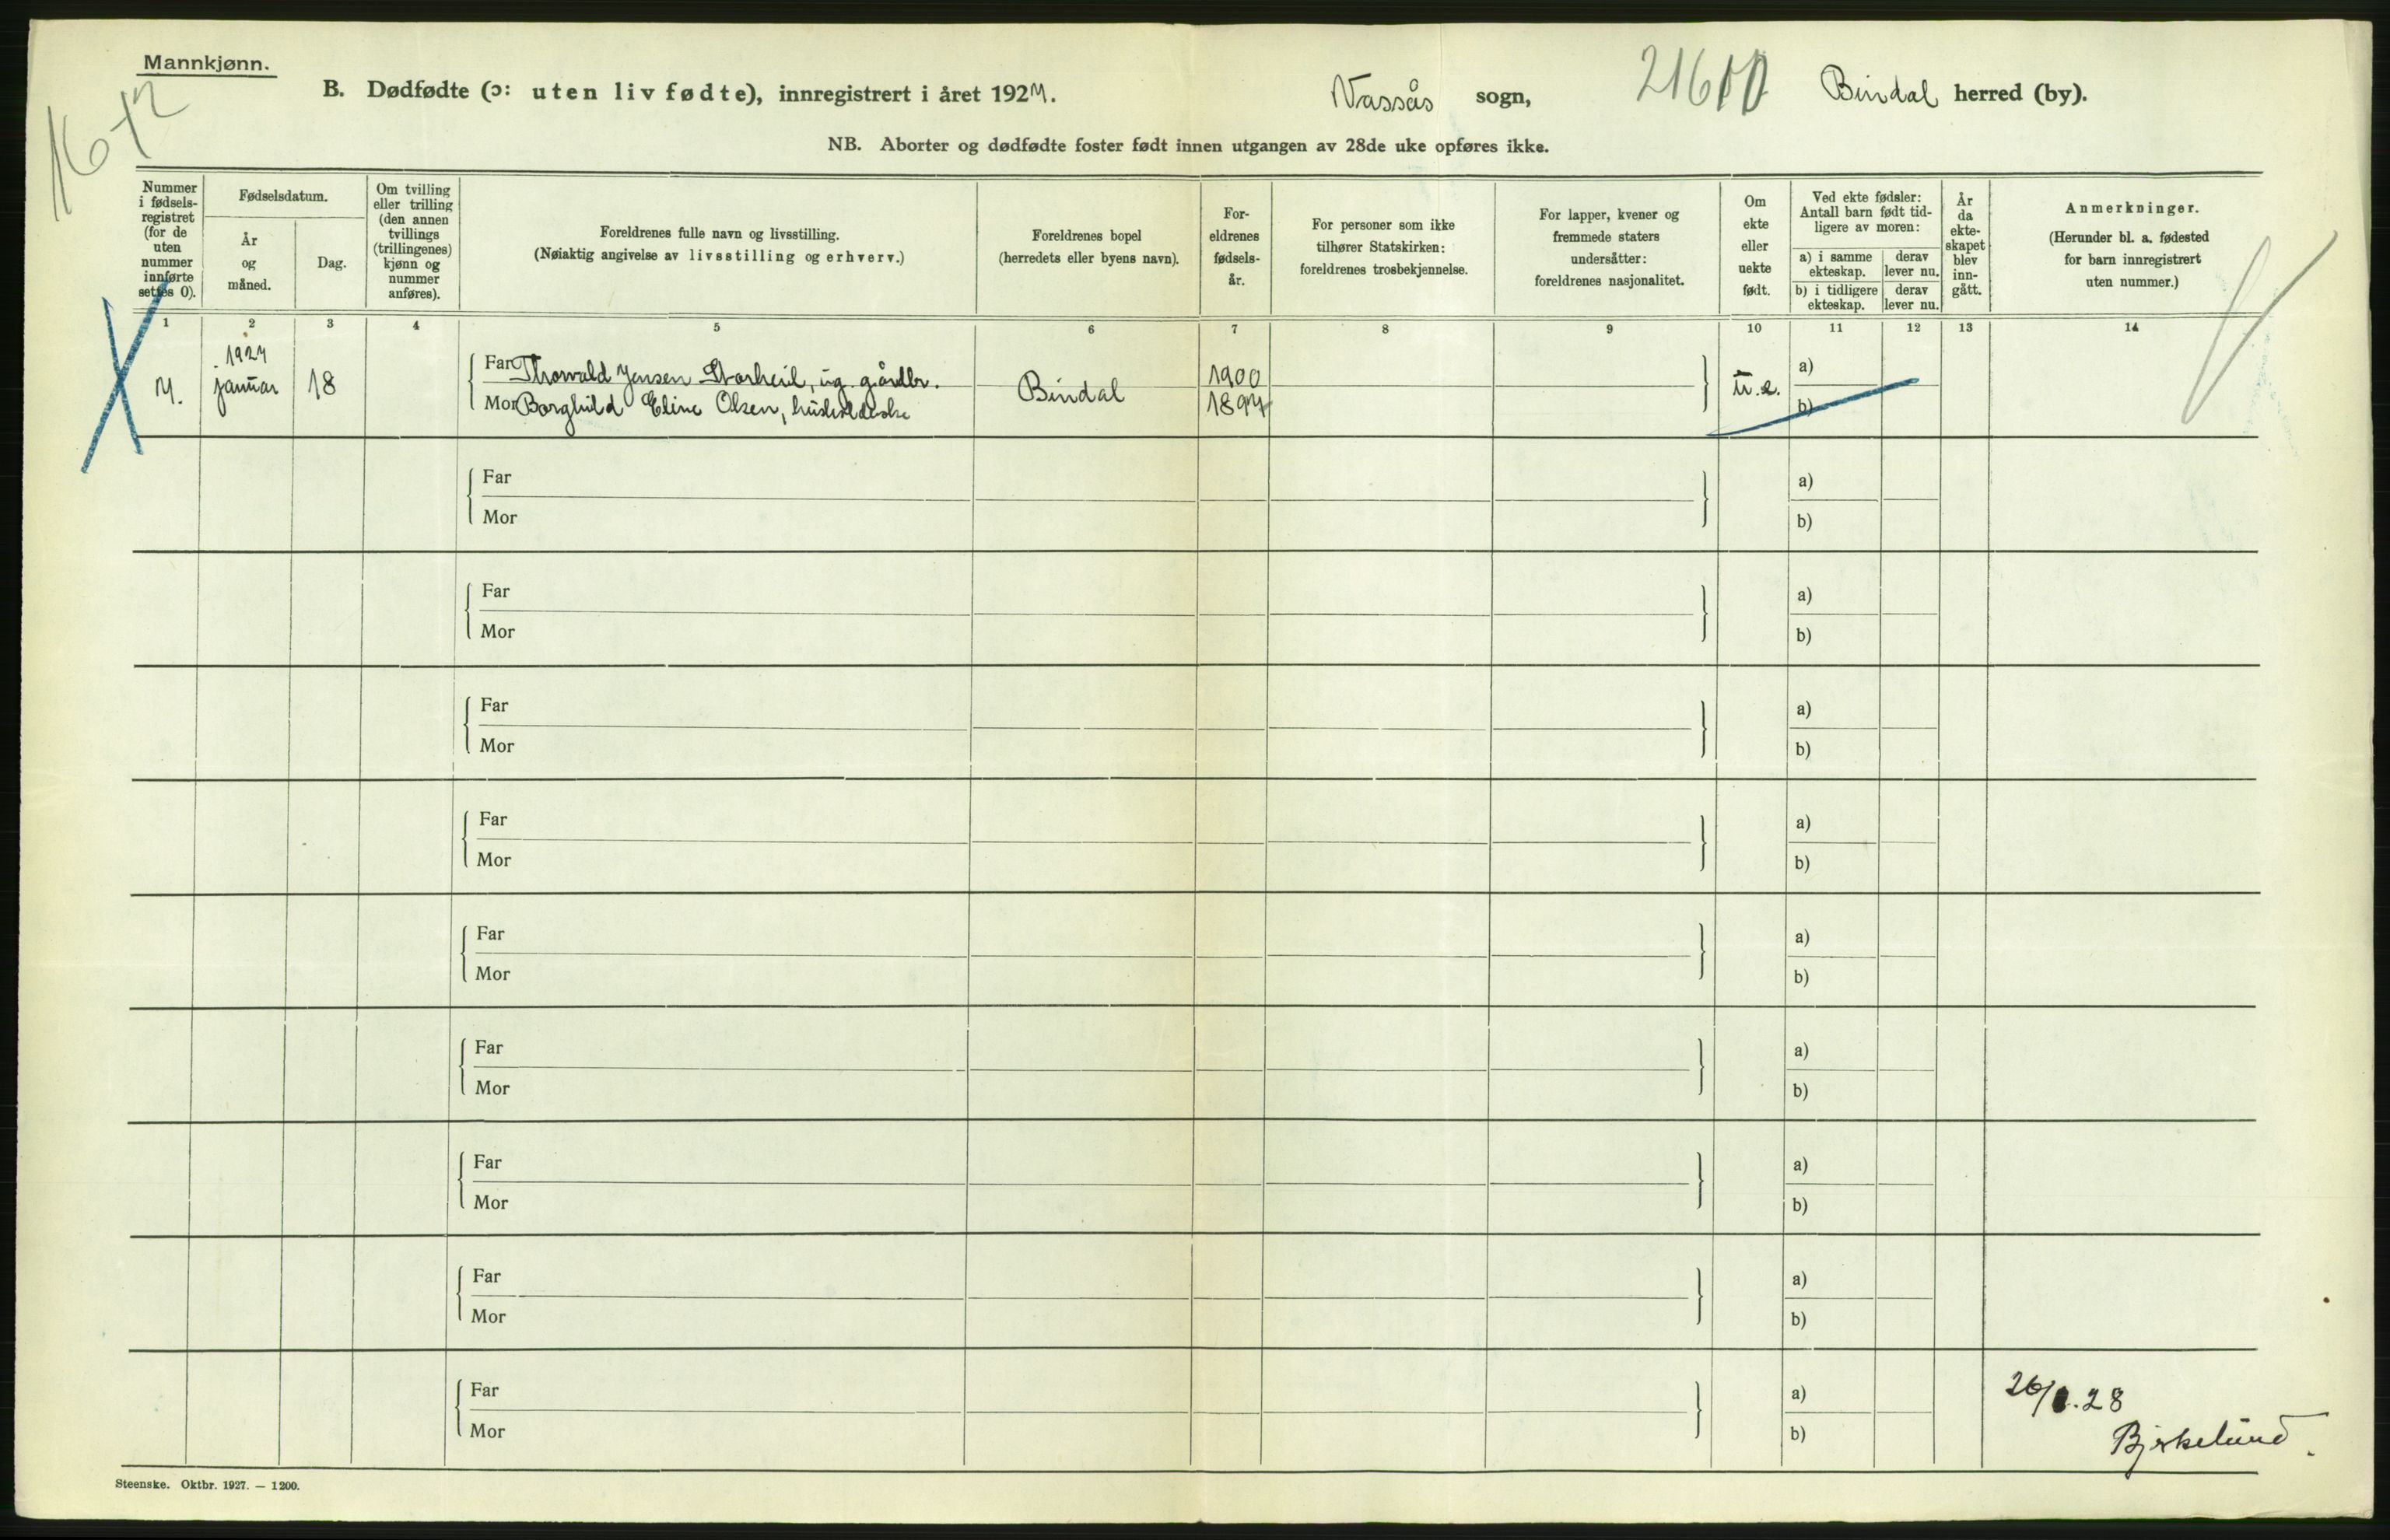 Mannkjønn.
B. Dødfødte (ɔ: uten liv fødte), innregistrert i året 1927.
Vassås sogn,
Bindal herred (by).
16 + 2
NB. Aborter og dødfødte foster født innen utgangen av 28de uke opføres ikke.
Nummer i fødsels-registret (for de uten nummer innførte settes 0).
Fødselsdatum.
År og måned.
Dag.
Om tvilling eller trilling (den annen tvillings (trillingenes) kjønn og nummer anføres).
Foreldrenes fulle navn og livsstilling.
(Nøiaktig angivelse av livsstilling og erhverv.)
Foreldrenes bopel
(herredets eller byens navn).
For-eldrenes fødsels-år.
For personer som ikke tilhører Statskirken: foreldrenes trosbekjennelse.
For lapper, kvener og fremmede staters undersåtter: foreldrenes nasjonalitet.
Om ekte eller uekte født.
Ved ekte fødsler: Antall barn født tid-ligere av moren:
a) i samme ekteskap.
derav lever nu.
b) i tidligere ekteskap.
derav lever nu.
År da ekte-skapet blev inn-gått.
Anmerkninger.
(Herunder bl. a. fødested for barn innregistrert uten nummer.)
1 2 3 4 5 6 7 8 9 10 11 12 13 14
7. 1927 januar 18
Far Thorvald Jensen Storheil, ug. gårdbr. 1900
Bindal u.e. a)
Mor Borghild Eline Olsen, husholderske 1897 b)
Far a)
Mor b)
Far a)
Mor b)
Far a)
Mor b)
Far a)
Mor b)
Far a)
Mor b)
Far a)
Mor b)
Far a)
Mor b)
Far a)
Mor b)
Far a)
Mor b)
28
Bjrkelund.
Steenske. Oktbr. 1927. — 1200.